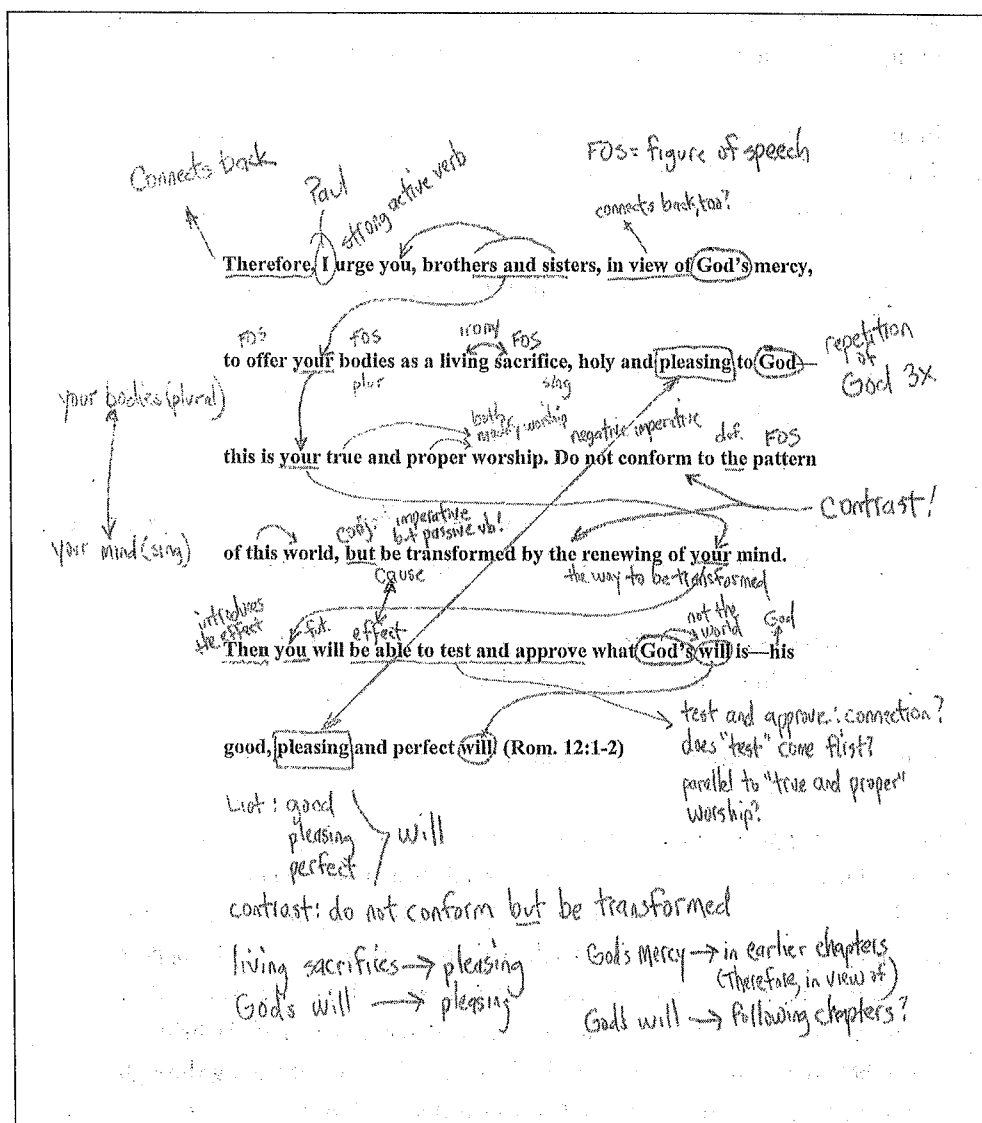 Connects back
Paul
strong active verb
FOS = figure of speech
connects back, too?
Therefore, I urge you, brothers and sisters, in view of God's mercy,
FOS
FOS
irony
FOS
to offer your bodies as a living sacrifice, holy and pleasing to God—
repetition
of
God 3x
plur
sing
your bodies (plural)
both
modify worship
negative imperative
def.
FOS
this is your true and proper worship. Do not conform to the pattern
contrast!
your mind (sing)
conj.
imperative
but passive vb!
of this world, but be transformed by the renewing of your mind.
cause
the way to be transformed
introduces
the effect
fut.
effect
not the
world
God
Then you will be able to test and approve what God's will is—his
test and approve: connection?
does "test" come first?
parallel to "true and proper"
worship?
good, pleasing and perfect will (Rom. 12:1-2)
List: good
pleasing
perfect
will
contrast: do not conform but be transformed
living sacrifices → pleasing
God's will → pleasing
God's Mercy → in earlier chapters
(Therefore, in view of)
God's will → following chapters?